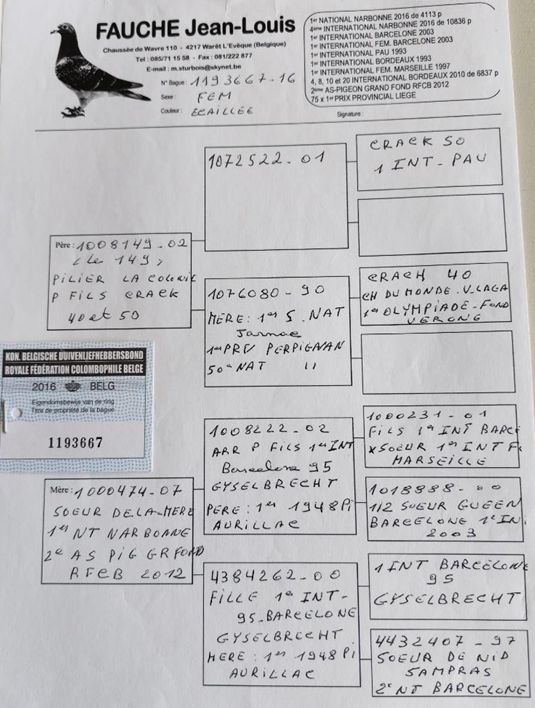 FAUCHE Jean-Louis
Chaussée de Wavre 110 - 4217 Warêt L'Evêque (Belgique)
Tel : 085/71 15 58 - Fax : 081/222 877
E-mail : m.sturbois@skynet.be
N° Bague : 1193667-16
Sexe : FEM
Couleur : ECAILLÉE
1er NATIONAL NARBONNE 2016 de 4113 p
4ème INTERNATIONAL NARBONNE 2016 de 10836 p
1er INTERNATIONAL BARCELONE 2003
1er INTERNATIONAL FEM. BARCELONE 2003
1er INTERNATIONAL PAU 1993
1er INTERNATIONAL BORDEAUX 1993
1er INTERNATIONAL FEM. MARSEILLE 1997
4, 8, 10 et 20 INTERNATIONAL BORDEAUX 2010 de 6837 p
2ème AS-PIGEON GRAND FOND RFCB 2012
75 x 1er PRIX PROVINCIAL LIEGE
Signature :
1072522-01
CRACK 50
1 INT-PAU
Père : 1008149-02
"Le 149"
PILIER LA COLONIE
P FILS CRACK
40 et 50
1076080-90
MERE : 1er S. NAT
Jarnac
1er PRV PERPIGNAN
50e NAT "
CRACH 40
CH DU MONDE. V. LAGA
1er OLYMPIADE-FOND
VERONE
KON. BELGISCHE DUIVENLIEFHEBBERSBOND
ROYALE FÉDÉRATION COLOMBOPHILE BELGE
2016 BELG
Eigendomsbewijs van de ring
Titre de propriété de la bague
1193667
Mère : 1000474-07
SOEUR DE LA MERE
1er NT NARBONNE
2e AS PIG GR FOND
RFCB 2012
1008222-02
ARR P FILS 1er INT
Barcelone 95
GYSELBRECHT
PERE : 1er 1948 Pi
AURILLAC
1000231-01
FILS 1er INT BARCE
x SOEUR 1er INT F
MARSEILLE
1018888-00
1/2 SOEUR GUEEN
BARCELONE 1e IN
2003
4384262-00
FILLE 1e INT-
95-BARCELONE
GYSELBRECHT
MERE : 1er 1948 Pi
AURILLAC
1 INT BARCELONE
95
GYSELBRECHT
4432407-97
SOEUR DE NID
SAMPRAS
2e NT BARCELONE